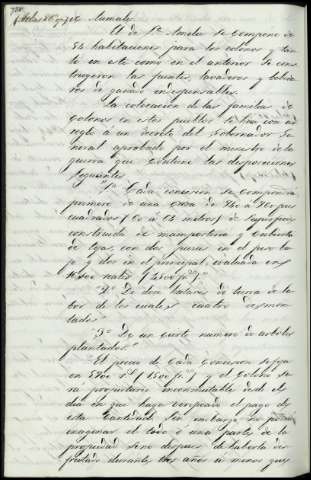 llamale
El de Sta. Amelia se compone de
54 habitaciones para los colonos y tan-
to en este como en el anterior se cons-
truyeron las fuentes, lavaderos y bebede-
ros de ganado indispensables.
La colocacion de las familias de
Colonos en estos pueblos se hizo con ar-
reglo a un decreto del Gobernador Ge-
neral aprobado por el ministro de la
guerra que contiene las disposiciones
siguientes
1ª Cada concesion se compondrá
primero de una casa de
cuadrados ( metros) de superficie
construida de mamposteria y cubierta
de teja, con dos piezas en el piso ba-
jo y dos en el principal, evaluada en
reales
2º De doce hectareas de tierra de la-
bor de las cuales cuatro desmon-
tadas
3º De un cierto numero de arboles
plantados.
El precio de cada concesion se fija
en y el Colono se-
rá propietario inconmutable desde el
dia en que haya completado el pago de
esta cantidad sin embargo no podrá
enagenar el todo ó una parte de la
propiedad sino despues de haberla dis-
frutado durante tres años á menos que